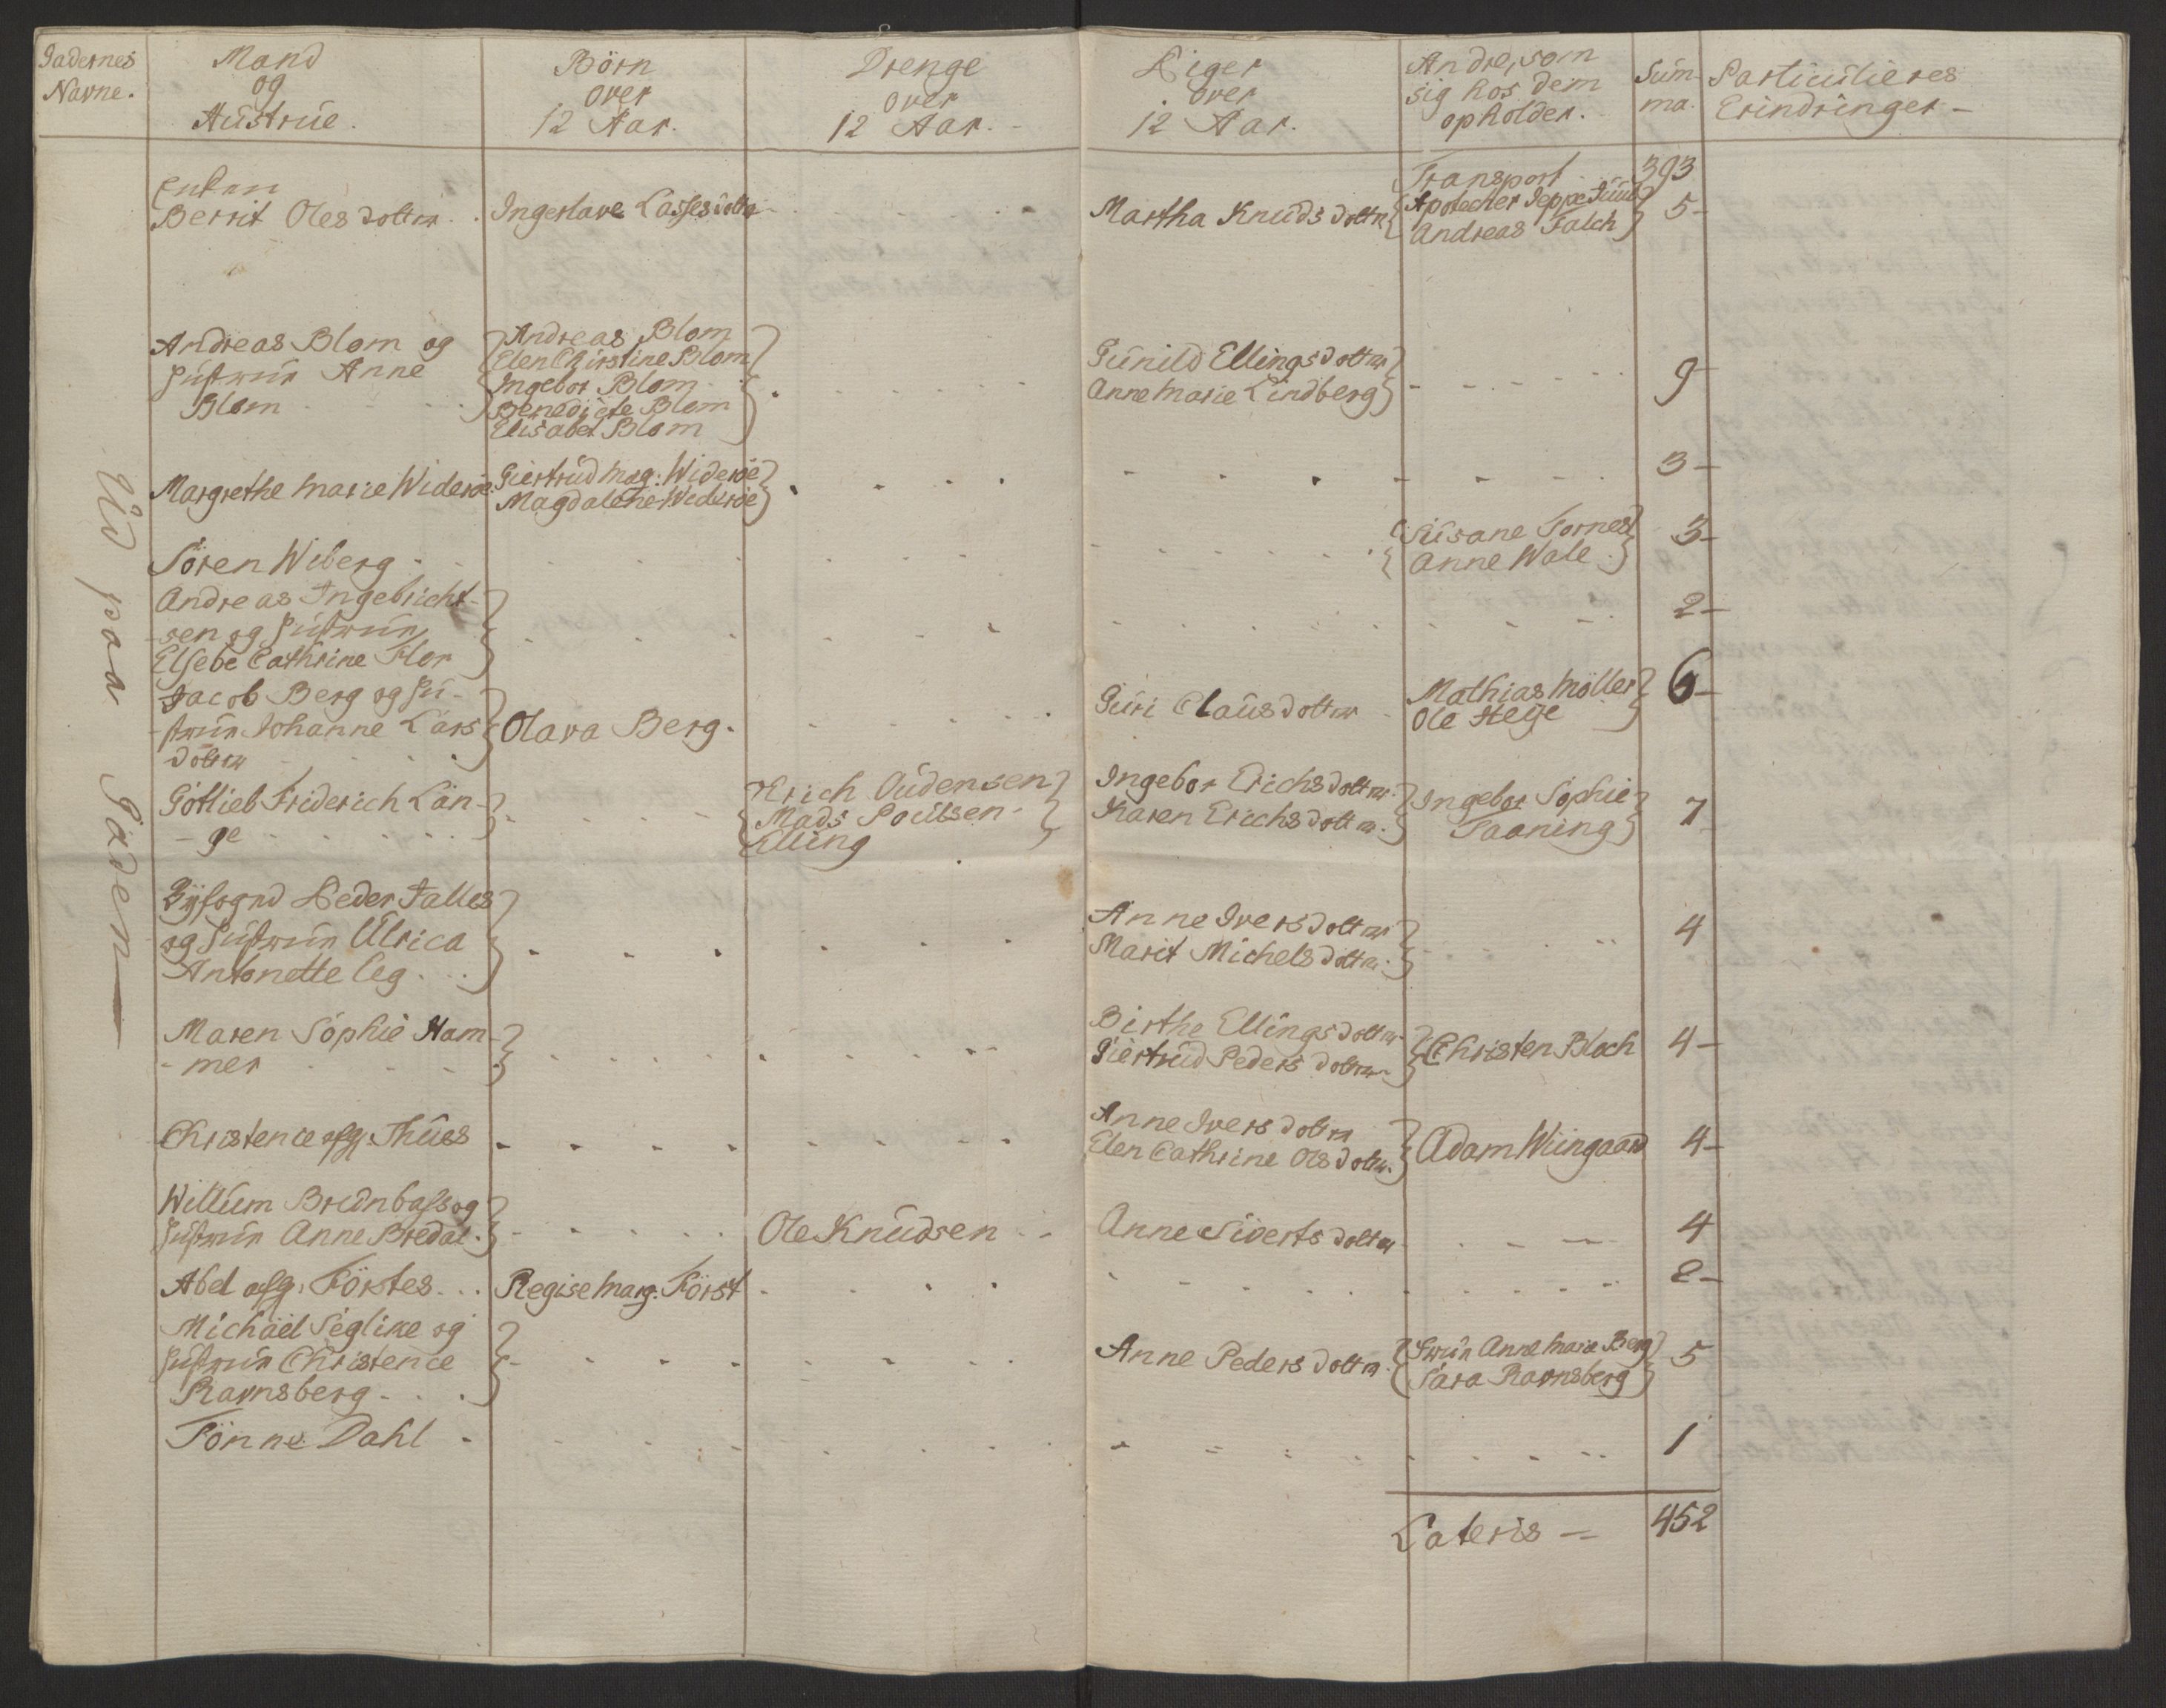 Gadernes
Navne.
Mand
og
Hustrue.
Börn
over
12 Aar.
Drenge
over
12 Aar.
Piger
over
12 Aar.
Andre, som
sig hos dem
opholder.
Sum-
ma.
Particulieres
Erindringer
Transport 393
Ud paa Gaden
Enken
Berrit Olesdotter
Lasses dotter
Martha Knudsdotter
Apotecher Jeppe Juul
Andreas Falch
5
Andreas Blom og
Hustrue Anne
Blom
Andreas Blom
Elen Chirstine Blom
Ingebor Blom
Benedicte Blom
Elisabet Blom
Gunild Ellingsdotter
Anne Marie Lindberg
9
Margrethe Marie Wideröe
Giertrud Mag. Wideröe
Magdalene Wideröe
3
Sören Wiberg
Susane Fornes
Anne Wale
3
Andreas Ingebricht-
-sen og Hustrue
Elsebe Cathrine Flor
2
Jacob Berg og Hu-
-strue Johanne Lars
dotter
Olava Berg
Guri Clausdotter
Mathias Möller
Ole Heije
6
Gotlieb Friderich Lan-
-ge
Erich Oudensen
Mads Poulsen
Elling
Ingebor Erichsdotter
Karen Erichsdotter
Ingebor Sophie
Taaning
7
Byfogud Peder Falles
og Hustrue Ulrica
Antonette Ceg
Anne Iversdotter
Marit Michelsdotter
4
Maren Sophie Ham-
-mer
Birthe Ellingsdotter
Giertrud Pedersdotter
Christen Bloch
4
Christence afg. Thues
Anne Iversdotter
Elen Cathrine Olsdotter
Adam Wiingaard
4
Willum og
Hustrue Anne Bredal
Ole Knudsen
Anne Sivertsdotter
4
Abel afg. Förstes
Regise Marg. Först
2
Michael Seglike og
Hustrue Christence
Ravnsberg
Anne Pedersdotter
Frue Anne Marie Berg
Sara Ravnsberg
5
Tönne Dahl
1
Lateris 452